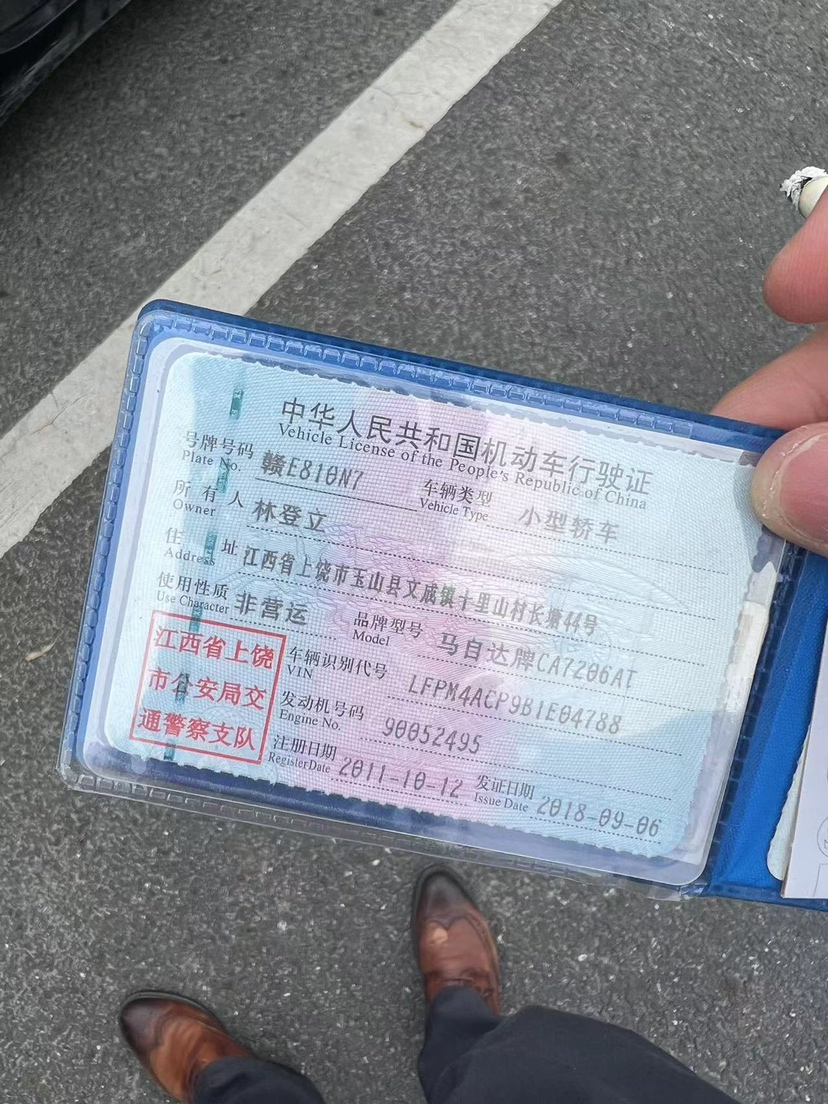 中华人民共和国机动车行驶证
Vehicle License of the People's Republic of China
号牌号码 赣E810N7 车辆类型 小型轿车
Plate No. Vehicle Type
所有人 林登立
Owner
住址 江西省上饶市玉山县文成镇十里山村长塘44号
Address
使用性质 非营运 品牌型号 马自达牌CA7206AT
Use Character Model
江西省上饶
市公安局交
通警察支队
车辆识别代号 LFPM4ACP9B1E04788
VIN
发动机号码 90052495
Engine No.
注册日期 2011-10-12 发证日期 2018-09-06
Register Date Issue Date